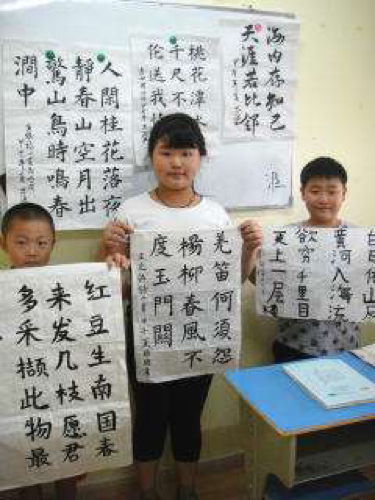 海内存知己
天涯若比邻
桃花潭水
千尺不
伦送我
人閑桂花落夜
静春山空月出
驚山鳥時鳴春
澗中
白日依山尽
黄河入海流
欲穷千里目
更上一层楼
羌笛何須怨
楊柳春風不
度玉門關
红豆生南国春
来发几枝愿君
多采撷此物最